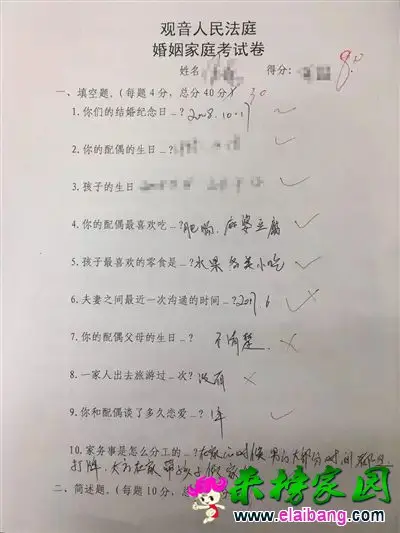 观音人民法庭
婚姻家庭考试卷
姓名 得分:
一、填空题.(每题4分,总分40分) 30
1.你们的结婚纪念日…?2008.10.17
2.你的配偶的生日…?
3.孩子的生日
4.你的配偶最喜欢吃…?肥肠、麻婆豆腐
5.孩子最喜欢的零食是…?水果 各类小吃
6.夫妻之间最近一次沟通的时间…?2017.6
7.你的配偶父母的生日…? 不清楚.
8.一家人出去旅游过…次? 没有
9.你和配偶谈了多久恋爱…? 1年
10.家务事是怎么分工的…?在家的时候 男的大部分时间
打牌.
二、简述题.(每题10分,总
来榜家园
www.elaibang.com